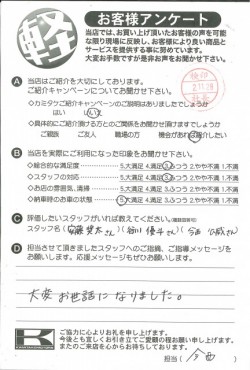 軽
お客様アンケート
当店では、お買い上げ頂いたお客様の声を可能
な限り現場に反映し、お客様により良い商品と
サービスを提供する事に努めています。
大変お手数ですが是非お声をお聞かせ下さい。
A 当店はご紹介を大切にしております。
ご紹介キャンペーンについてお聞かせ下さい。
◇カミタケご紹介キャンペーンのご説明はありましたでしょうか
はい いいえ
◇具体的にご紹介頂ける方とのご関係をお聞かせ頂けますでしょうか
ご親族 ご友人 職場の方 機会があれば紹介したい
B 当店を実際にご利用になった印象をお聞かせ下さい。
◇総合的な満足度 5.大満足 4.満足 3.ふつう 2.やや不満 1.不満
◇スタッフの対応 5.大満足 4.満足 3.ふつう 2.やや不満 1.不満
◇お店の雰囲気、清掃 5.大満足 4.満足 3.ふつう 2.やや不満 1.不満
◇納車時のお車の状態 5.大満足 4.満足 3.ふつう 2.やや不満 1.不満
C 評価したいスタッフがいれば教えてください。
スタッフ名
D 担当させて頂きましたスタッフへのご指摘、ご指導メッセージを
お願いします。応援メッセージもぜひお願いします。
大変お世話になりました。
K
ご協力に心よりお礼を申し上げます。
今後とも宜しくお引き立てご愛顧の程お願い申し上げます。
またのご来店を心からお待ちしております。
担当( 今西 )